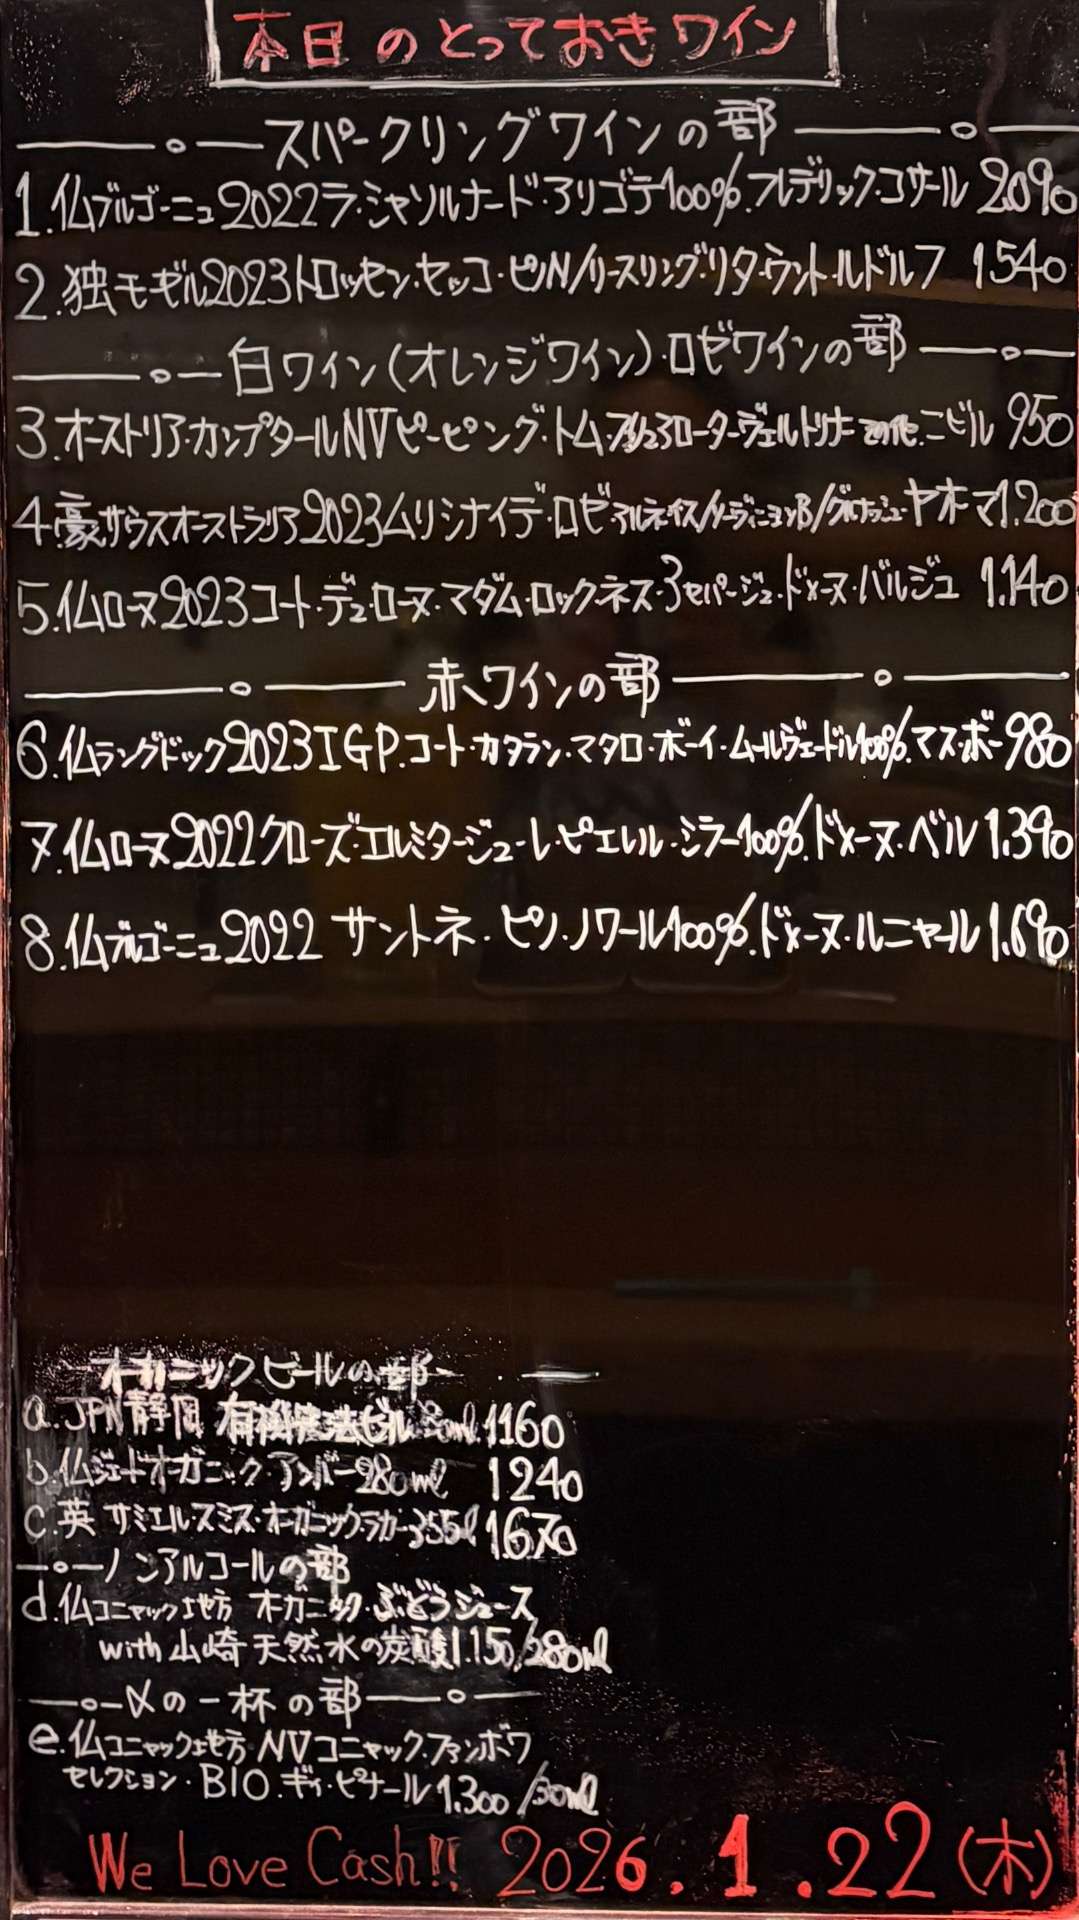 本日のとっておきワイン
スパークリングワインの部
1.仏ブルゴーニュ2022ラ・シャソルナード・アリゴテ100%.フレデリック・コサール 2.090
2.独モゼル2023トロッセン・セッコ・ピノN/リースリング・リタ・ウント・ルドルフ 1540
白ワイン(オレンジワイン)・ロゼワインの部
3.オーストリア・カンプタールNVピーピング・トム・フリュ23ローター・ヴェルトリナー その他.ニビル 950
4.豪サウスオーストラリア2023ムリシナイデ・ロゼ・アルネイス/カーディニョンB/グルナッシュ・ヤオマ1.200
5.仏ローヌ2023コート・デュ・ローヌ・マダム・ロックネス・3セパージュ・ドメーヌ・バルジュ 1.140
赤ワインの部
6.仏ラングドック2023IGP.コート・カタラン・マタロ・ボーイ・ムールヴェードル100%.マス・ボー980
7.仏ローヌ2022クローズ・エルミタージュ・レ・ピエレル・シラー100%.ドメーヌ・ベル1.390
8.仏ブルゴーニュ2022 サントネ・ピノ・ノワール100%.ドメーヌ・ルニャール1.690
オーガニックビールの部
a.JPN静岡 有機農法ビール ml.1160
b.仏ジェードオーガニック・アンバー280ml 1240
c.英 サミエル・スミス・オーガニック・ラガー355ml 1.670
ノンアルコールの部
d.仏コニャック地方 オーガニック・ぶどうジュース
with 山崎天然水の炭酸1.150/280ml
〆の一杯の部
e.仏コニャック地方・NVコニャック.ファンボワ
セレクション・BIO.ギィ・ピナール1.300/30ml
We Love Cash!! 2026.1.22(木)